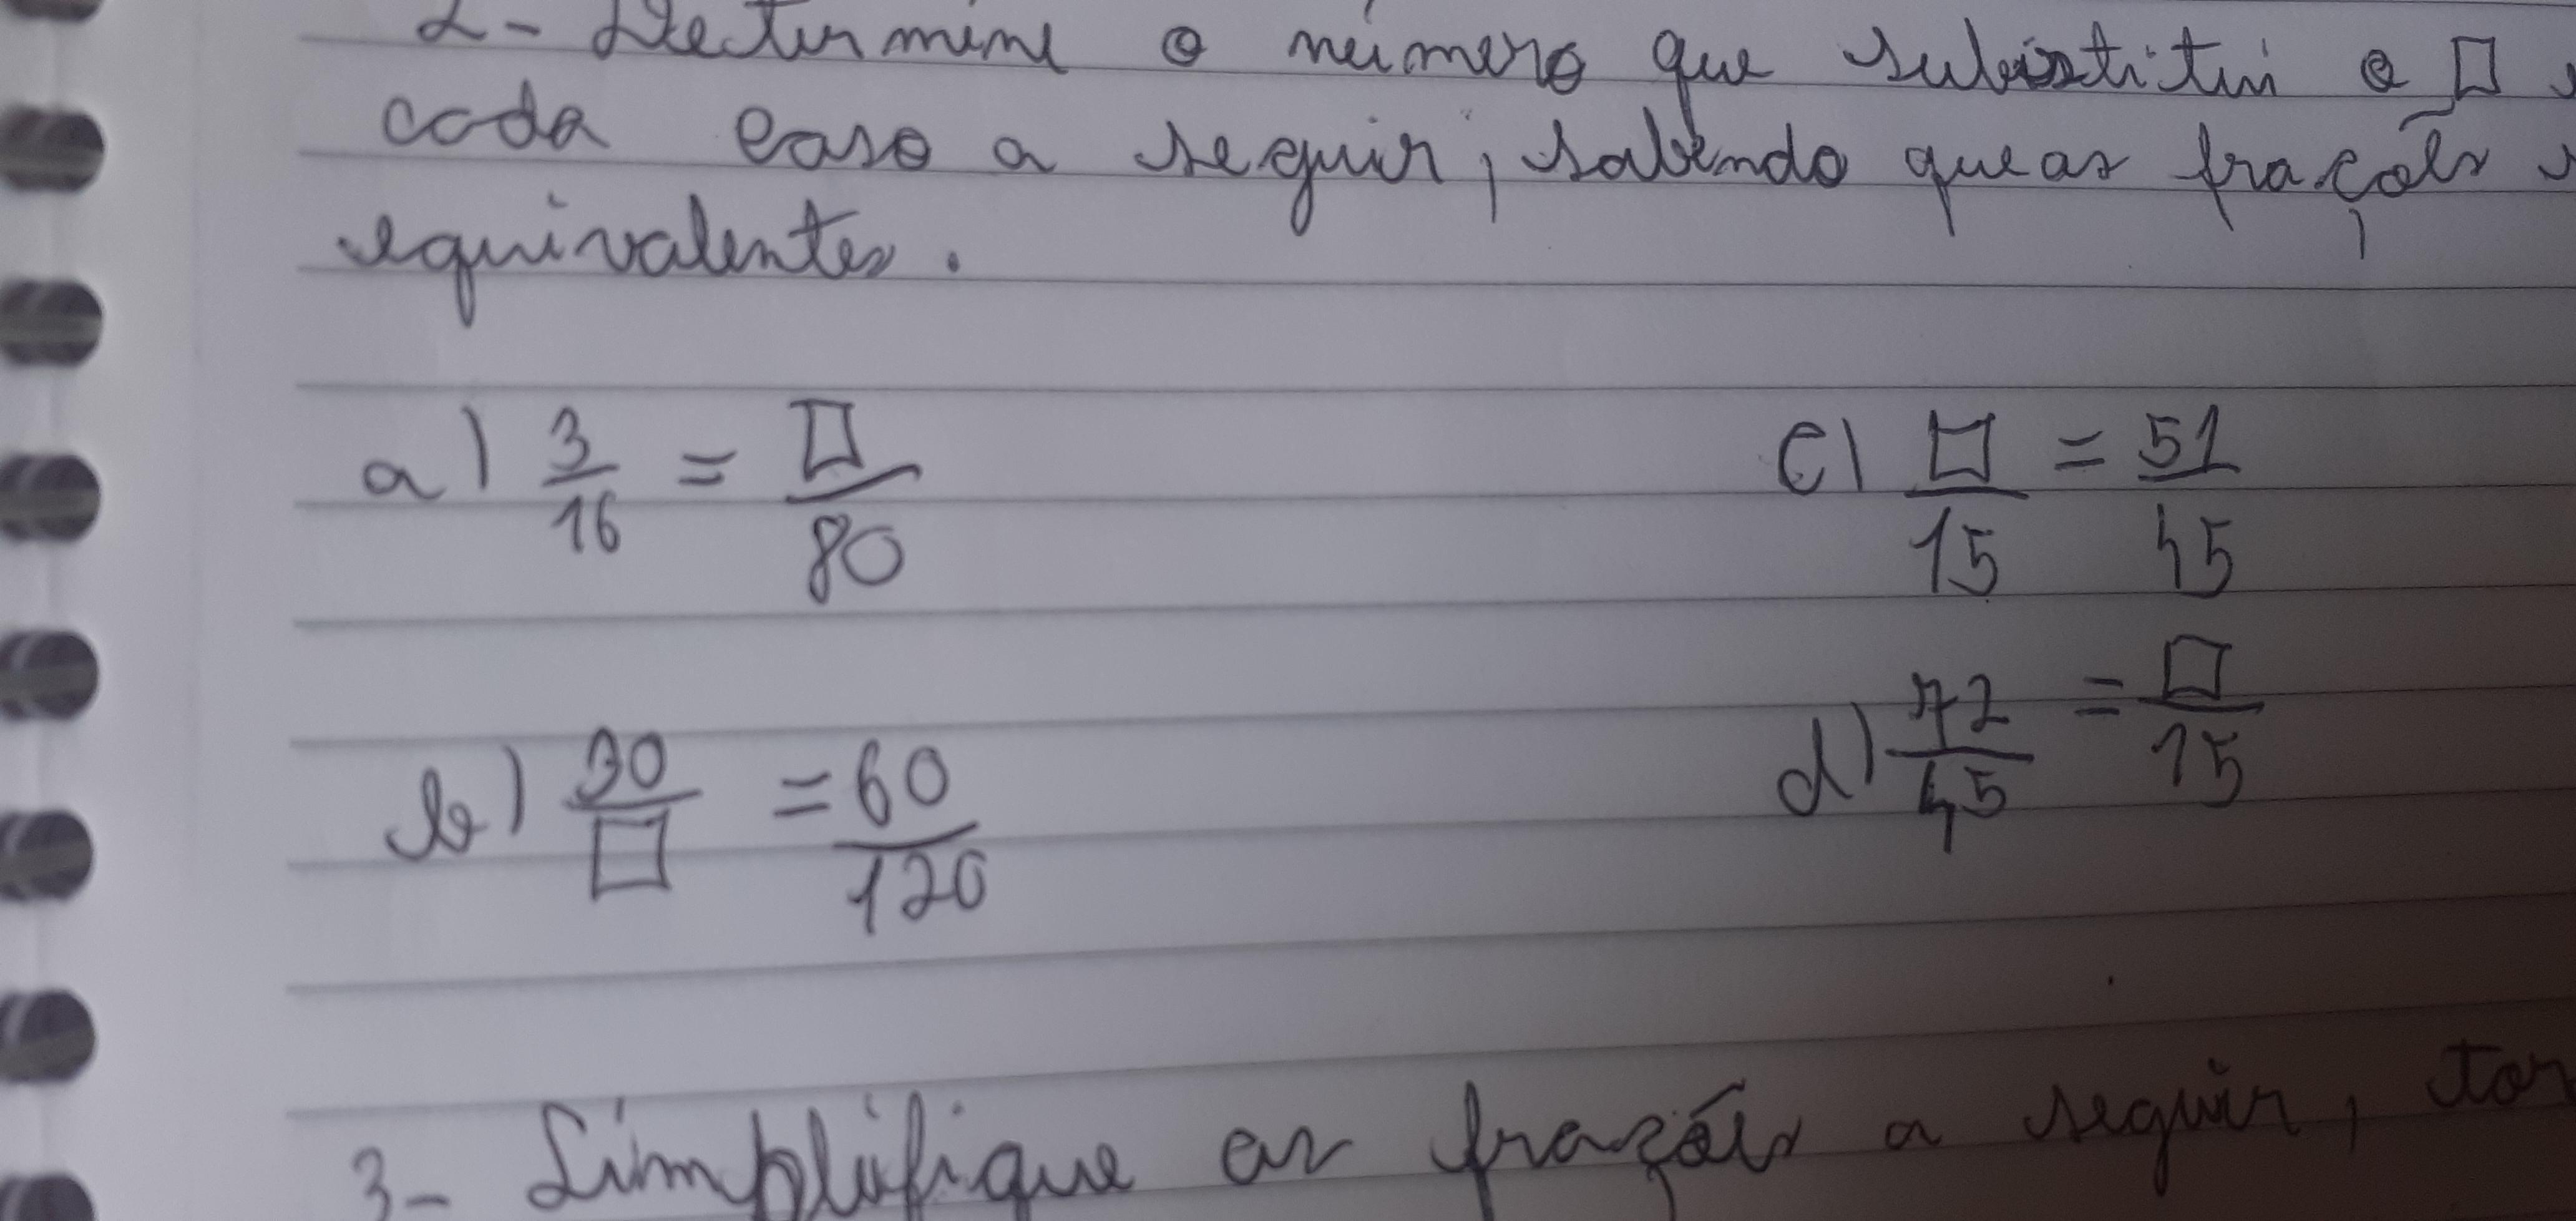 2- Determine o número que substitui o □
cada caso a seguir, sabendo que as frações
equivalentes.
a) 3/16 = □/80
c) □/15 = 51/45
b) 30/□ = 60/120
d) 72/45 = □/15
3- Simplifique as frações a seguir, tor